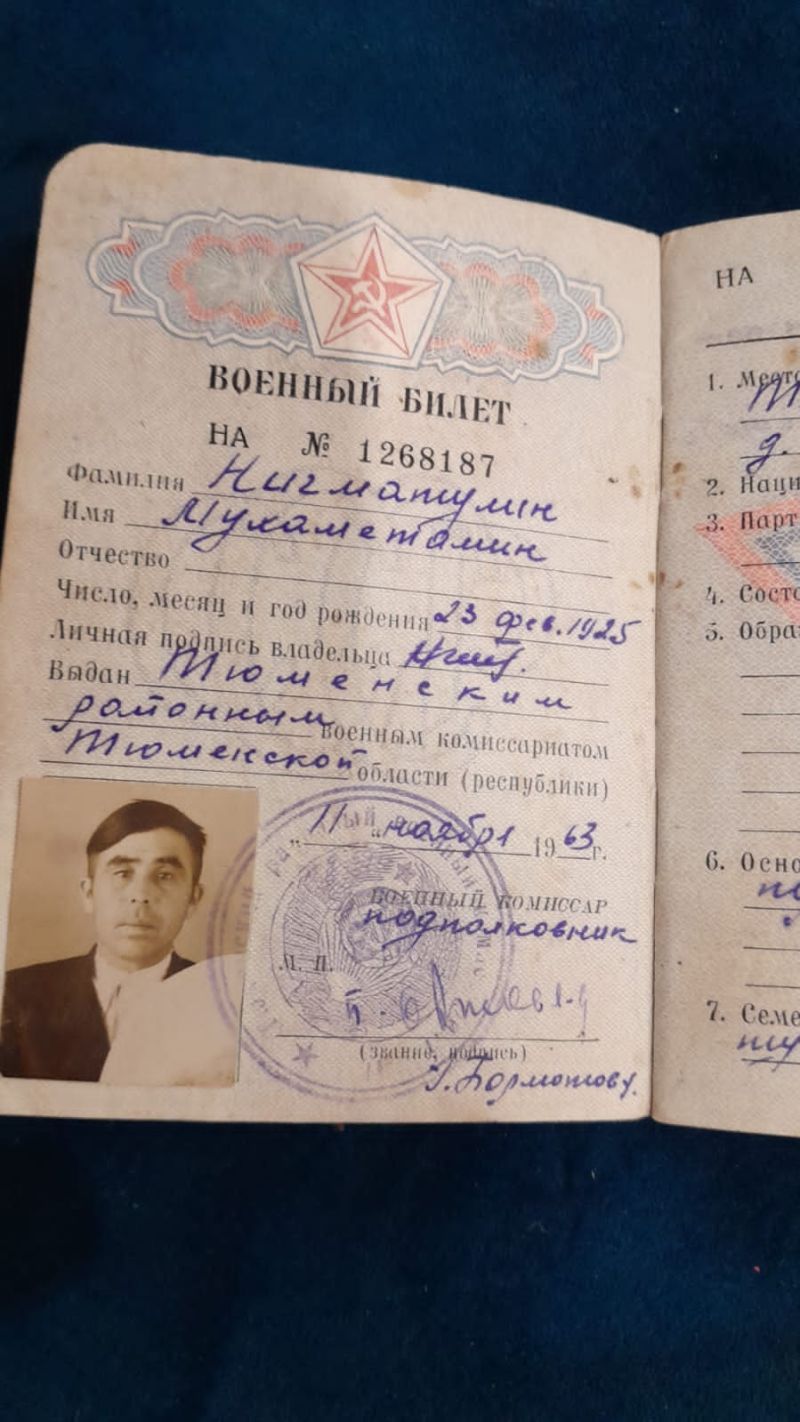 ВОЕННЫЙ БИЛЕТ
НА № 1268187
Фамилия Нигматулин
Имя Мухаметамин
Отчество
Число, месяц и год рождения 23 фев. 1925
Личная подпись владельца
Выдан Тюменским
районным военным комиссариатом
Тюменской области (республики)
„11“ ноября 1963 г.
ВОЕННЫЙ КОМИССАР
подполковник
М. П.
(звание, подпись)
НА
1. Место
д.
2. Наци
3. Парт
4. Состо
5. Обра
6. Осно
7. Семе